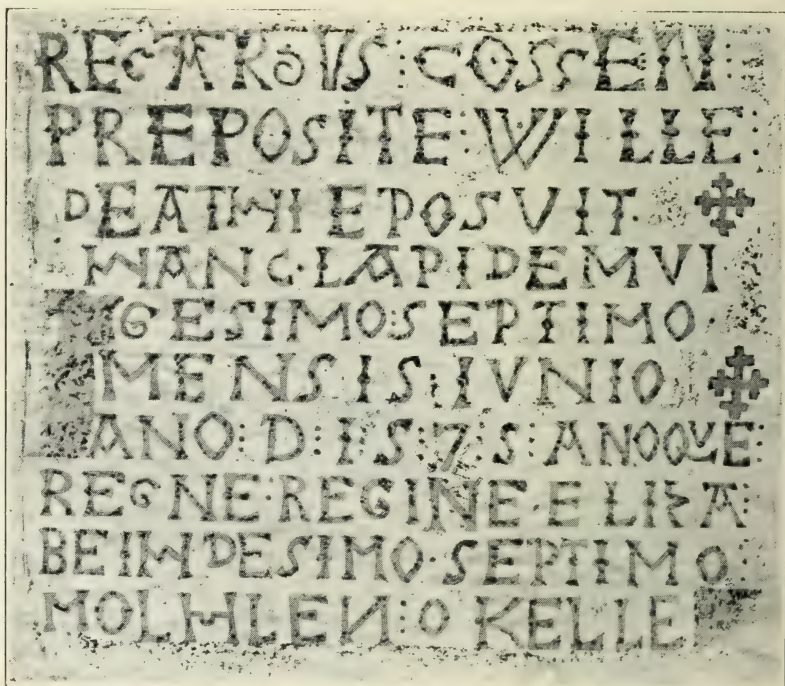 RECARDVS : COSSEN :
PREPOSITE : WILLE :
DEATHIE POSVIT.
HANC. LAPIDEM VI
GESIMO : SEPTIMO.
MENSIS : IVNIO
ANO : D : I 5 : 7 : 5 : ANOQVE :
REGNE : REGINE. ELIZA
BEIH DESIMO. SEPTIMO :
MOLHLEN : O KELLE